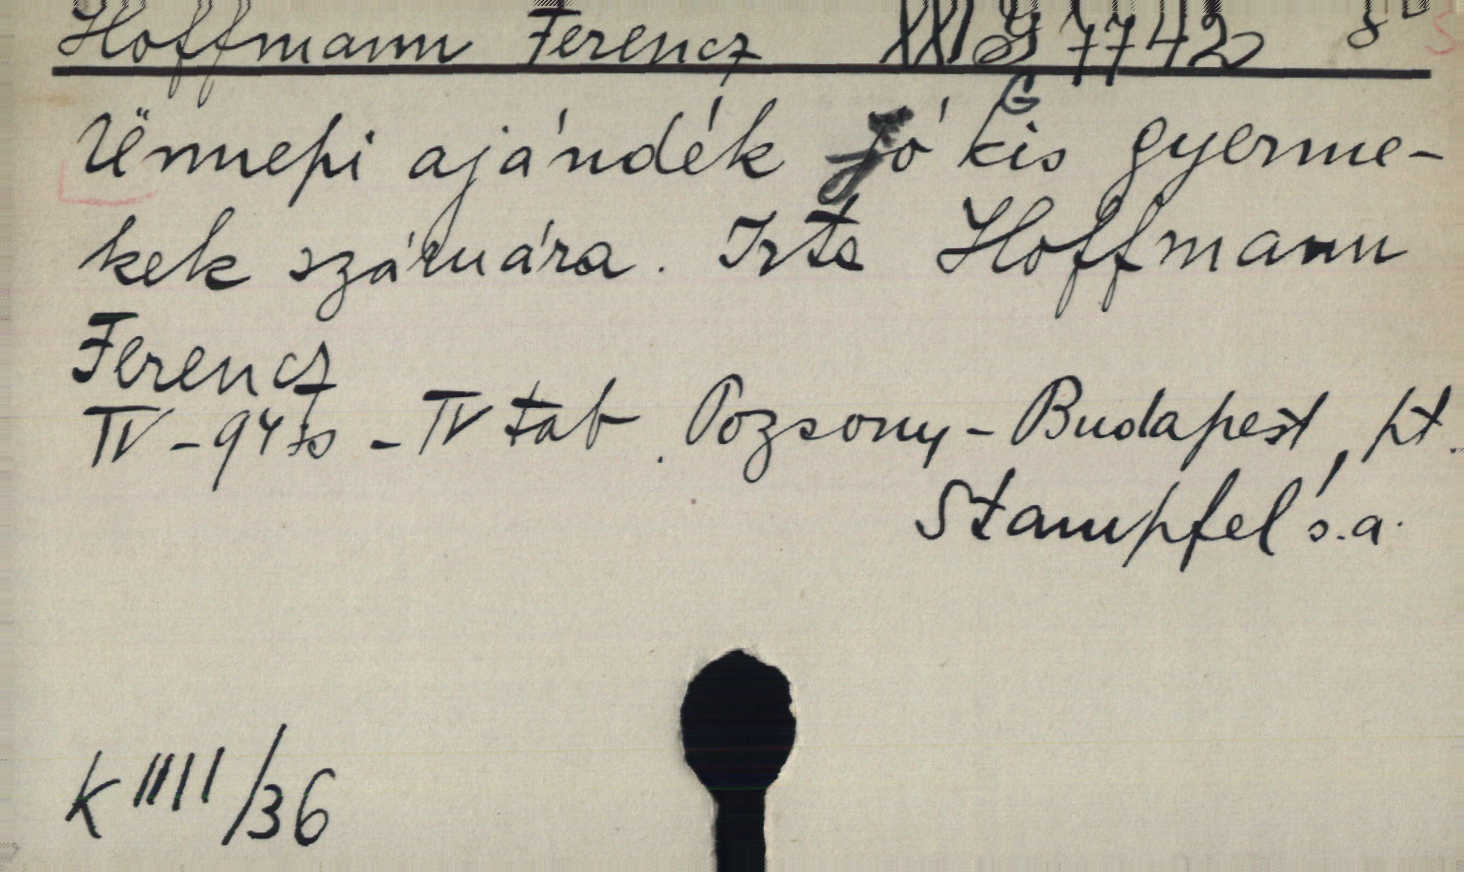 Hoffmann Ferencz XXI G 7742 8°
Ünnepi ajándék jó kis gyerme-
kek számára. Irta Hoffmann
Ferencz
IV - 94 ts - IV tab. Pozsony - Budapest, pt.
Stampfel s.a.
K IIII/36